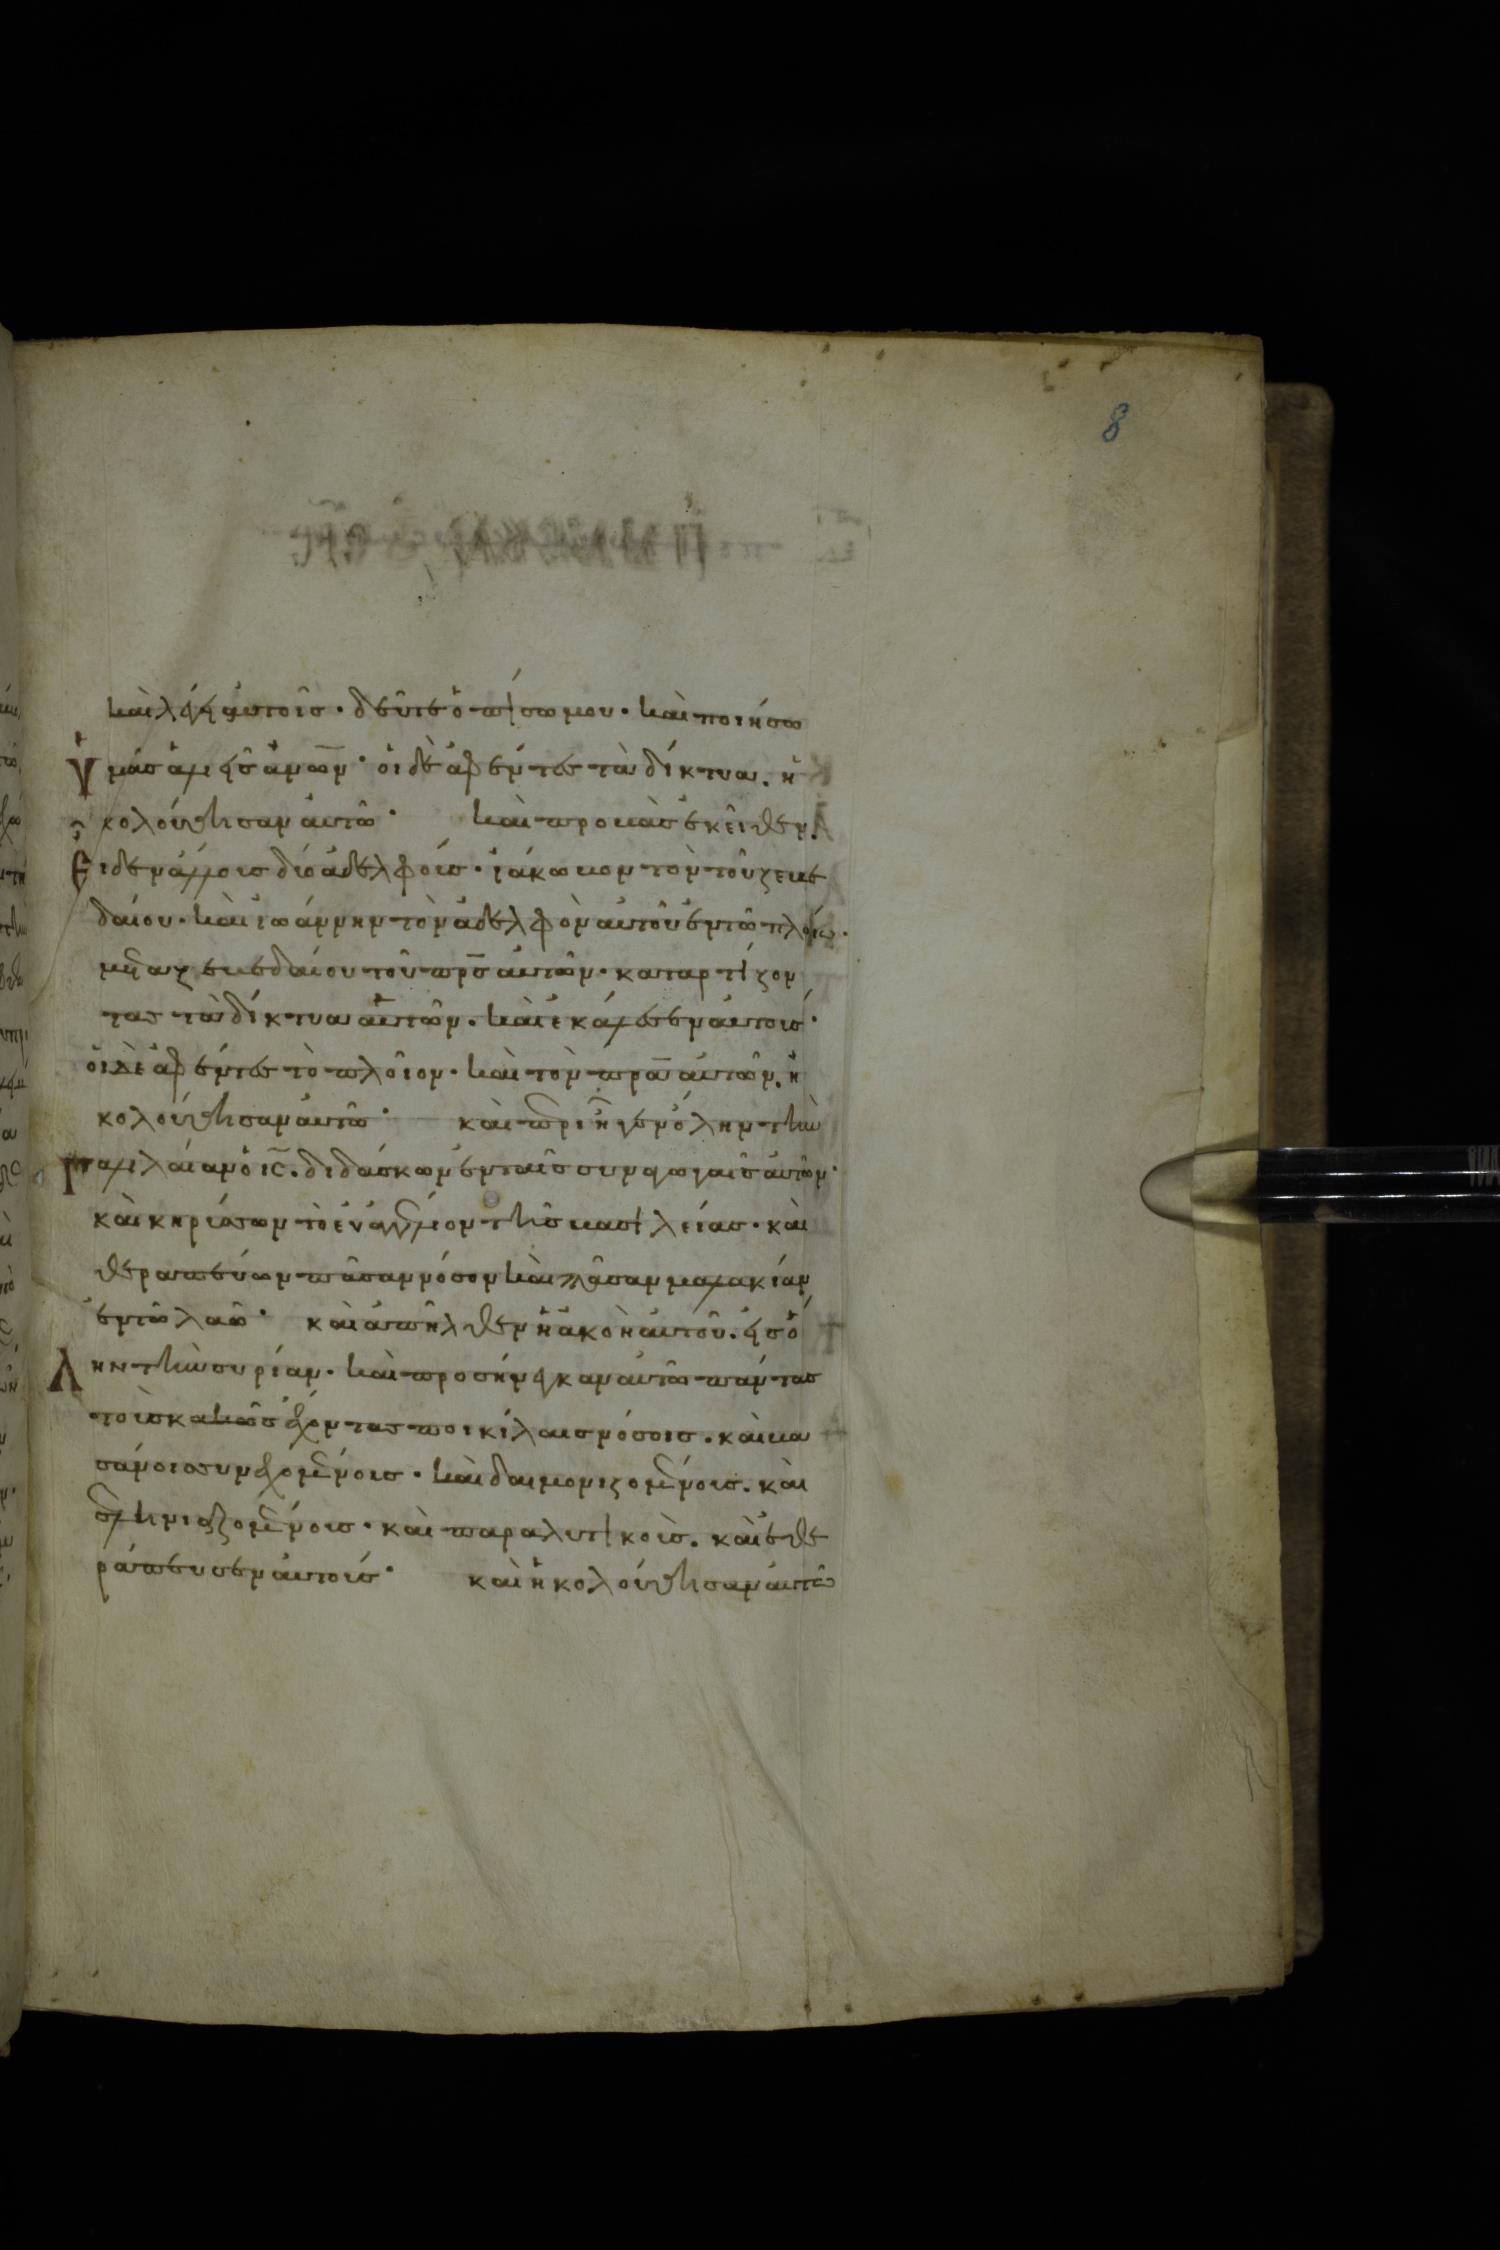 8
καὶ λέγει αὐτοῖς· δεῦτε ὀπίσω μου· καὶ ποιήσω
ὑμάσ ἁλιεῖσ ἀνω̅ν· οἱ δὲ ἀφέντεσ τὰ δίκτυα. ἠ
κολούθησαν αὐτῶ· καὶ προβὰσ ἐκεῖθεν.
εἶδεν ἄλλουσ δύο ἀδελφούσ· ἰάκωβον τὸν τοῦ ζεβε
δαίου· καὶ ἰωάννην τὸν ἀδελφὸν αὐτοῦ ἐν τῶ πλοίω·
μετὰ ζεβεδαίου τοῦ πρ̅σ αὐτῶν· καταρτίζον
τασ τὰ δίκτυα αὐτῶν. καὶ ἐκάλεσεν αὐτούσ·
οἱ δὲ ἀφέντεσ τὸ πλοῖον· καὶ τὸν πρα̅ αὐτῶν. ἠ
κολούθησαν αὐτῶ· καὶ περιῆγεν ὅλην τὴν
γαλιλαίαν ὁ ισ̅. διδάσκων ἐν ταῖσ συναγωγαῖσ αὐτῶν·
καὶ κηρύσσων τὸ εὐαγγέλιον τῆσ βασιλείασ· καὶ
θεραπεύων πᾶσαν νόσον καὶ πᾶσαν μαλακίαν
ἐν τῶ λαῶ· καὶ ἀπῆλθεν ἡ ἀκοὴ αὐτοῦ. εἰσ ὅ
λην τὴν συρίαν· καὶ προσήνεγκαν αὐτῶ πάντασ
τοὺσ κακῶσ ἔχοντασ ποικίλαισ νόσοισ. καὶ βα
σάνοισ συνεχομένουσ· καὶ δαιμονιζομένουσ. καὶ
σεληνιαζομένουσ· καὶ παραλυτικούσ. καὶ ἐθε
ράπευσεν αὐτούσ· καὶ ἠκολούθησαν αὐτῶ